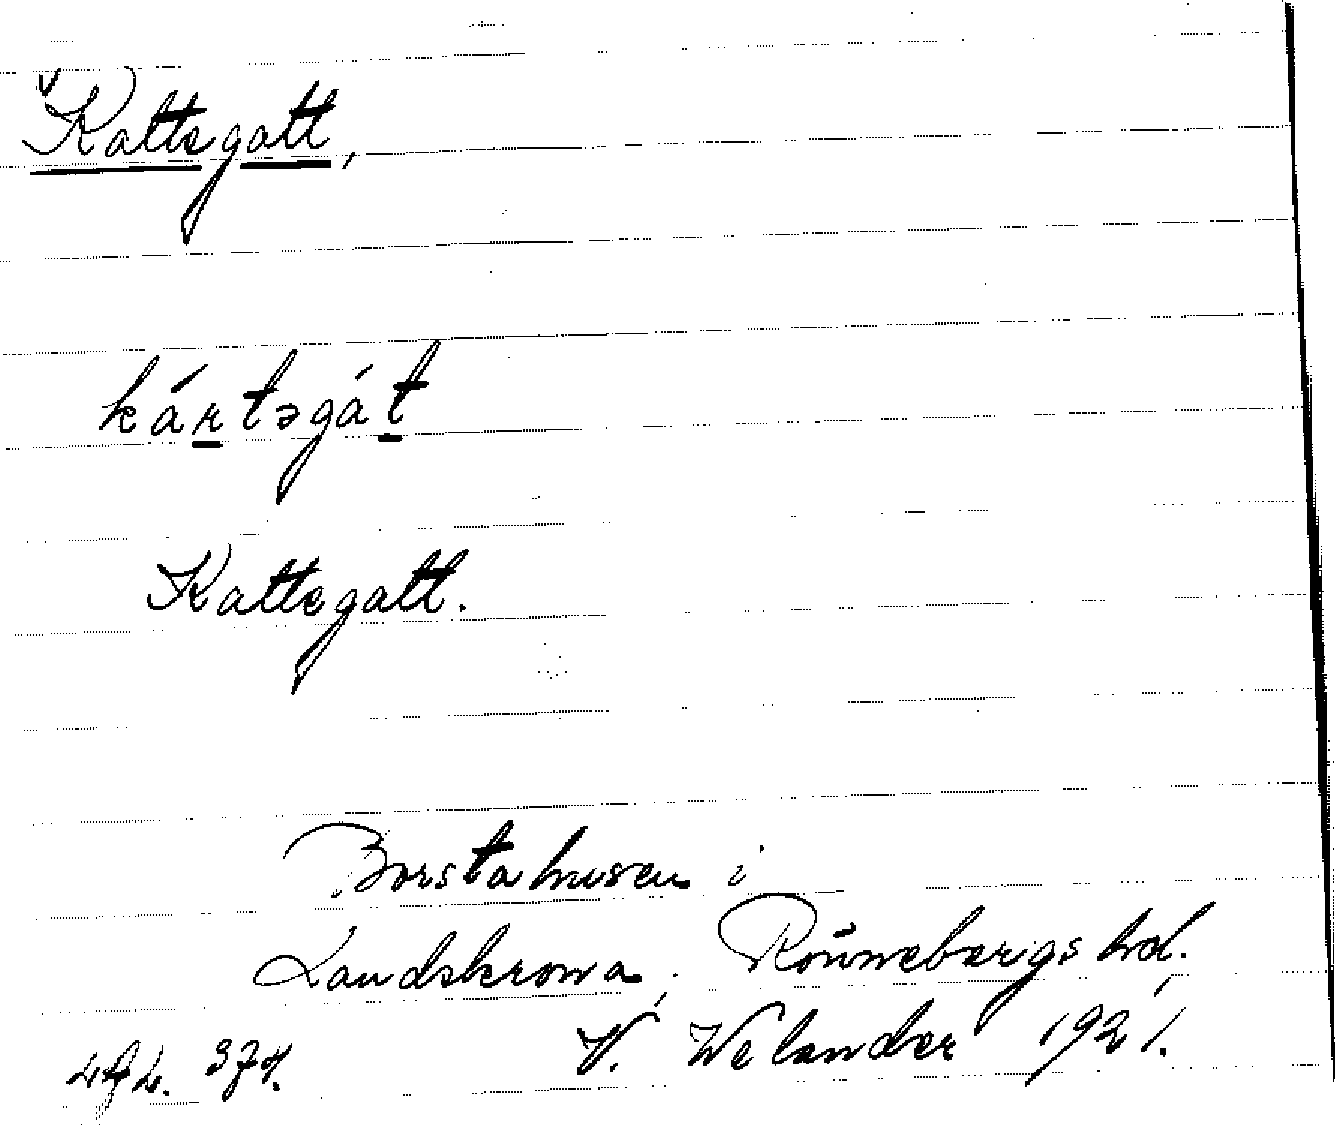 Kattegatt,
kártəgát
Kattegatt.
Borstahusen i
Landskrona, Rönnebergs hd.
W. Welander 1921.